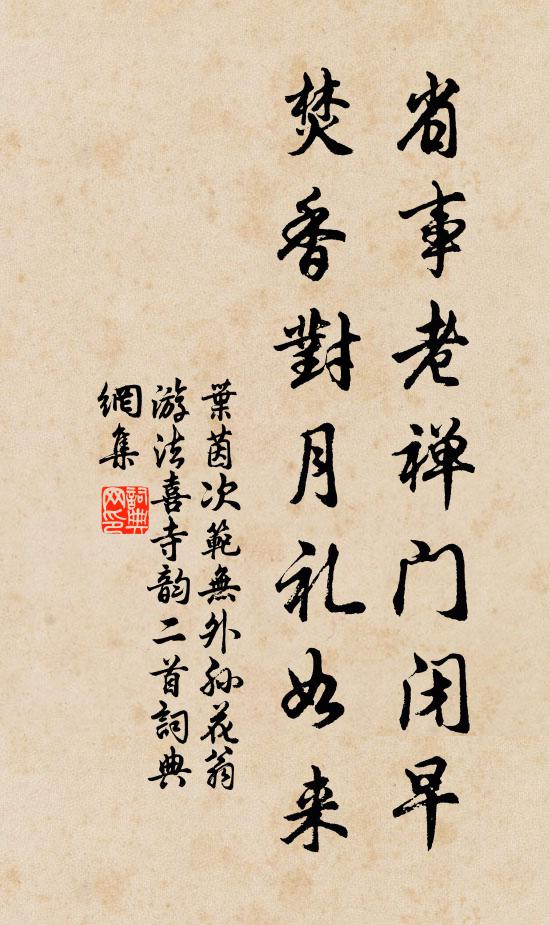 省事老禅门闭早
焚香對月礼如来
葉茵次範無外孙花翁
游法喜寺韵二首詞典
網集
詞典
网印